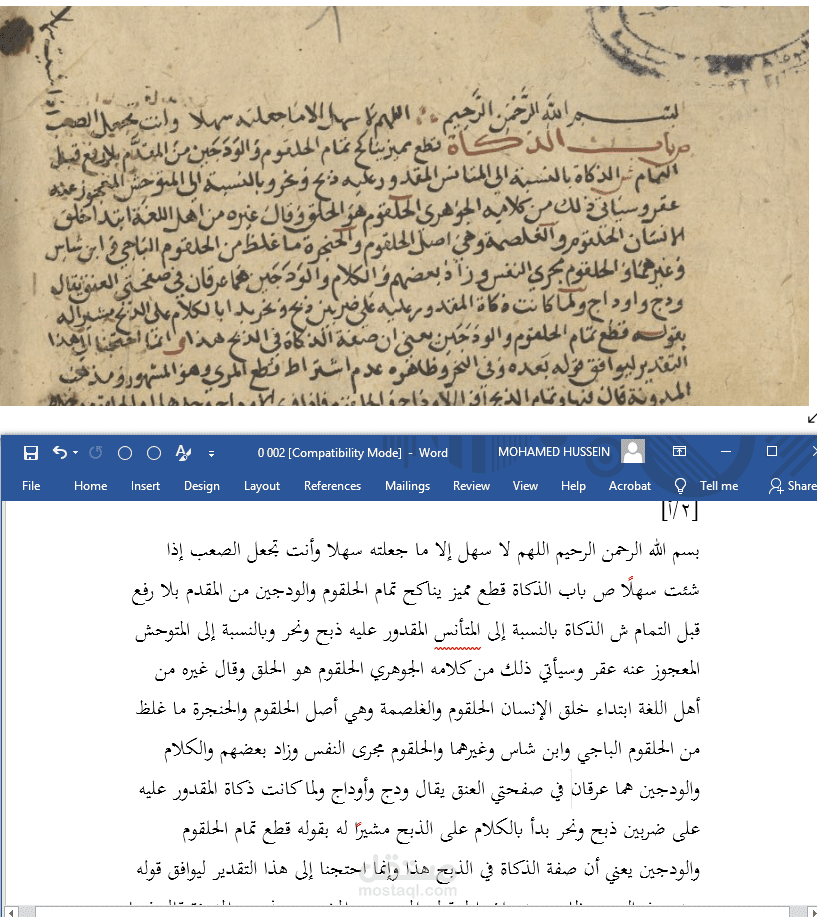 بسم الله الرحمن الرحيم اللهم لا سهل الا ما جعلته سهلا وانت تجعل الصعب
ص باب الذكاة قطع مميز يناكح تمام الحلقوم والودجين من المقدم بلا رفع قبل
التمام ش الذكاة بالنسبة الى المتانس المقدور عليه ذبح ونحر وبالنسبة الى المتوحش المعجوز عنه
عقر وسياتي ذلك من كلامه الجوهري الحلقوم هو الحلق وقال غيره من اهل اللغة ابتدا خلق
الانسان الحلقوم والغلصمة وهي اصل الحلقوم والحنجرة ما غلظ من الحلقوم الباجي وابن شاس
وغيرهما والحلقوم مجرى النفس وزاد بعضهم والكلام والودجين هما عرقان في صفحتي العنق يقال
ودج واوداج ولما كانت ذكاة المقدور عليه على ضربين ذبح ونحر بدا بالكلام على الذبح مشيرا له
بقوله قطع تمام الحلقوم والودجين يعني ان صفة الذكاة في الذبح هذا وانما احتجنا الى هذا
التقدير ليوافق قوله بعده وفي النحر وظاهره عدم اشتراط قطع المري وهو المشهور ومذهب
المدونة قال فيها وتمام الذبح
0 002 [Compatibility Mode] - Word
MOHAMED HUSSEIN
File Home Insert Design Layout References Mailings Review View Help Acrobat Tell me Share
[٢/أ]
بسم الله الرحمن الرحيم اللهم لا سهل إلا ما جعلته سهلا وأنت تجعل الصعب إذا
شئت سهلًا ص باب الذكاة قطع مميز يناكح تمام الحلقوم والودجين من المقدم بلا رفع
قبل التمام ش الذكاة بالنسبة إلى المتأنس المقدور عليه ذبح ونحر وبالنسبة إلى المتوحش
المعجوز عنه عقر وسيأتي ذلك من كلامه الجوهري الحلقوم هو الحلق وقال غيره من
أهل اللغة ابتداء خلق الإنسان الحلقوم والغلصمة وهي أصل الحلقوم والحنجرة ما غلظ
من الحلقوم الباجي وابن شاس وغيرهما والحلقوم مجرى النفس وزاد بعضهم والكلام
والودجين هما عرقان في صفحتي العنق يقال ودج وأوداج ولما كانت ذكاة المقدور عليه
على ضربين ذبح ونحر بدأ بالكلام على الذبح مشيرًا له بقوله قطع تمام الحلقوم
والودجين يعني أن صفة الذكاة في الذبح هذا وإنما احتجنا إلى هذا التقدير ليوافق قوله
مستقل
mostaql.com